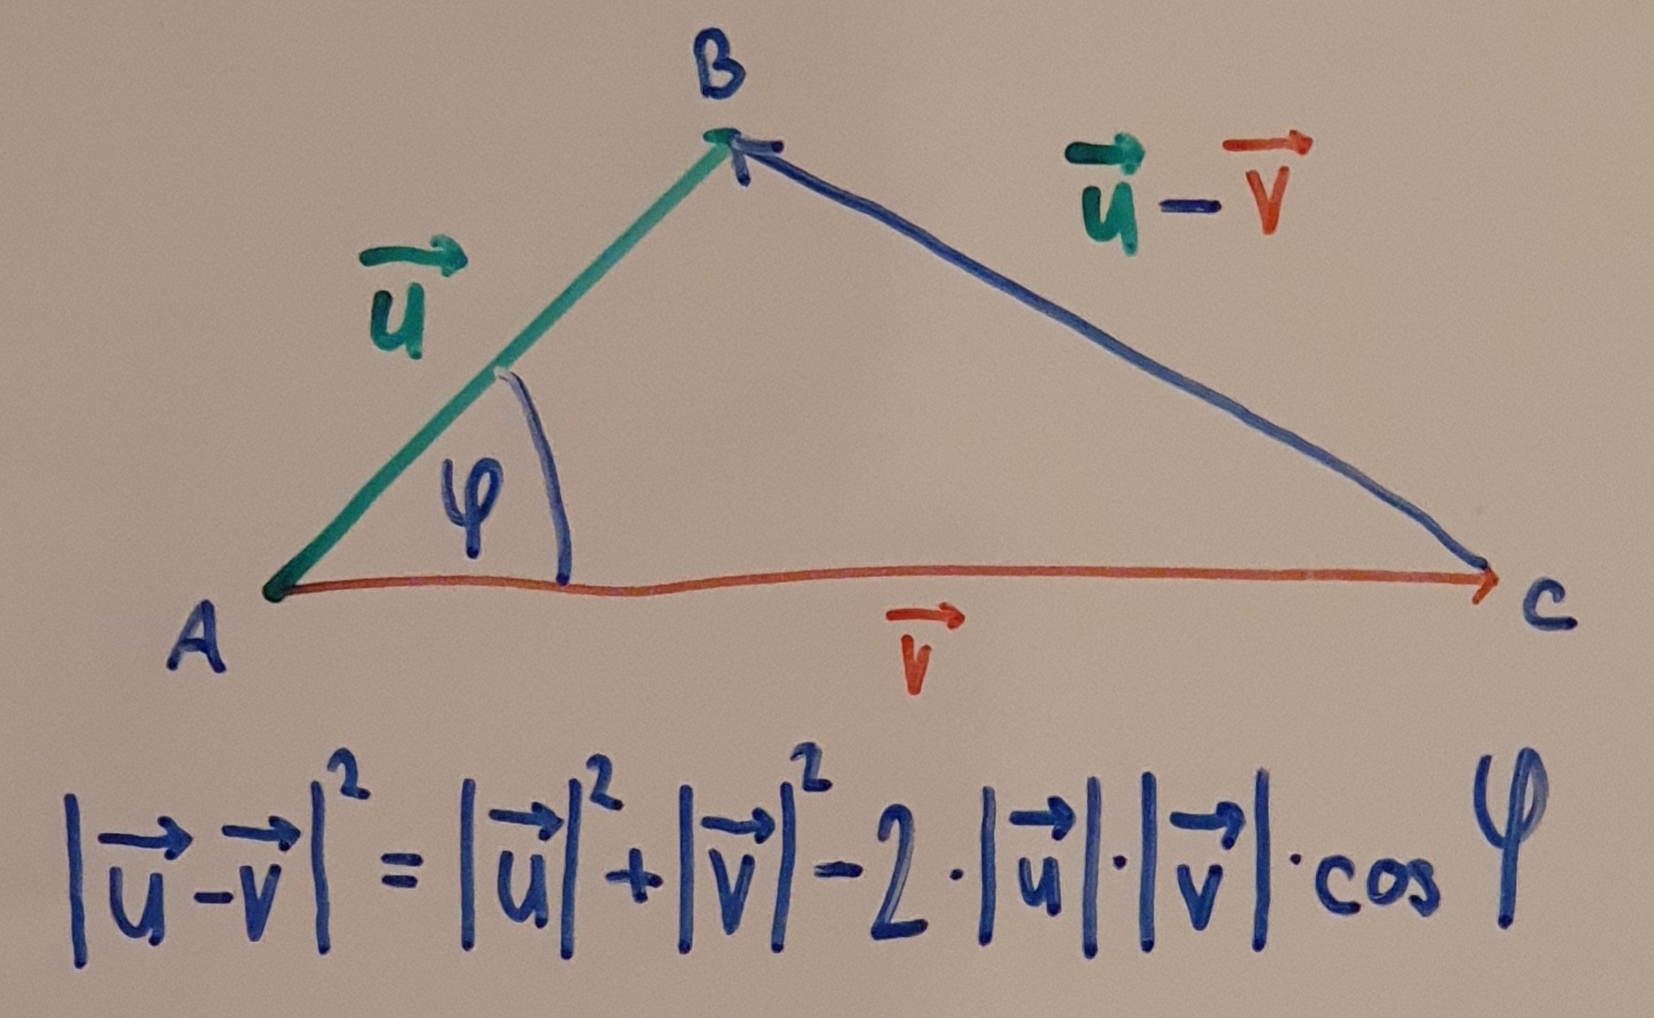 B
u⃗ - v⃗
u⃗
φ
A
C
v⃗
|u⃗-v⃗|² = |u⃗|²+|v⃗|²-2·|u⃗|·|v⃗|·cos φ